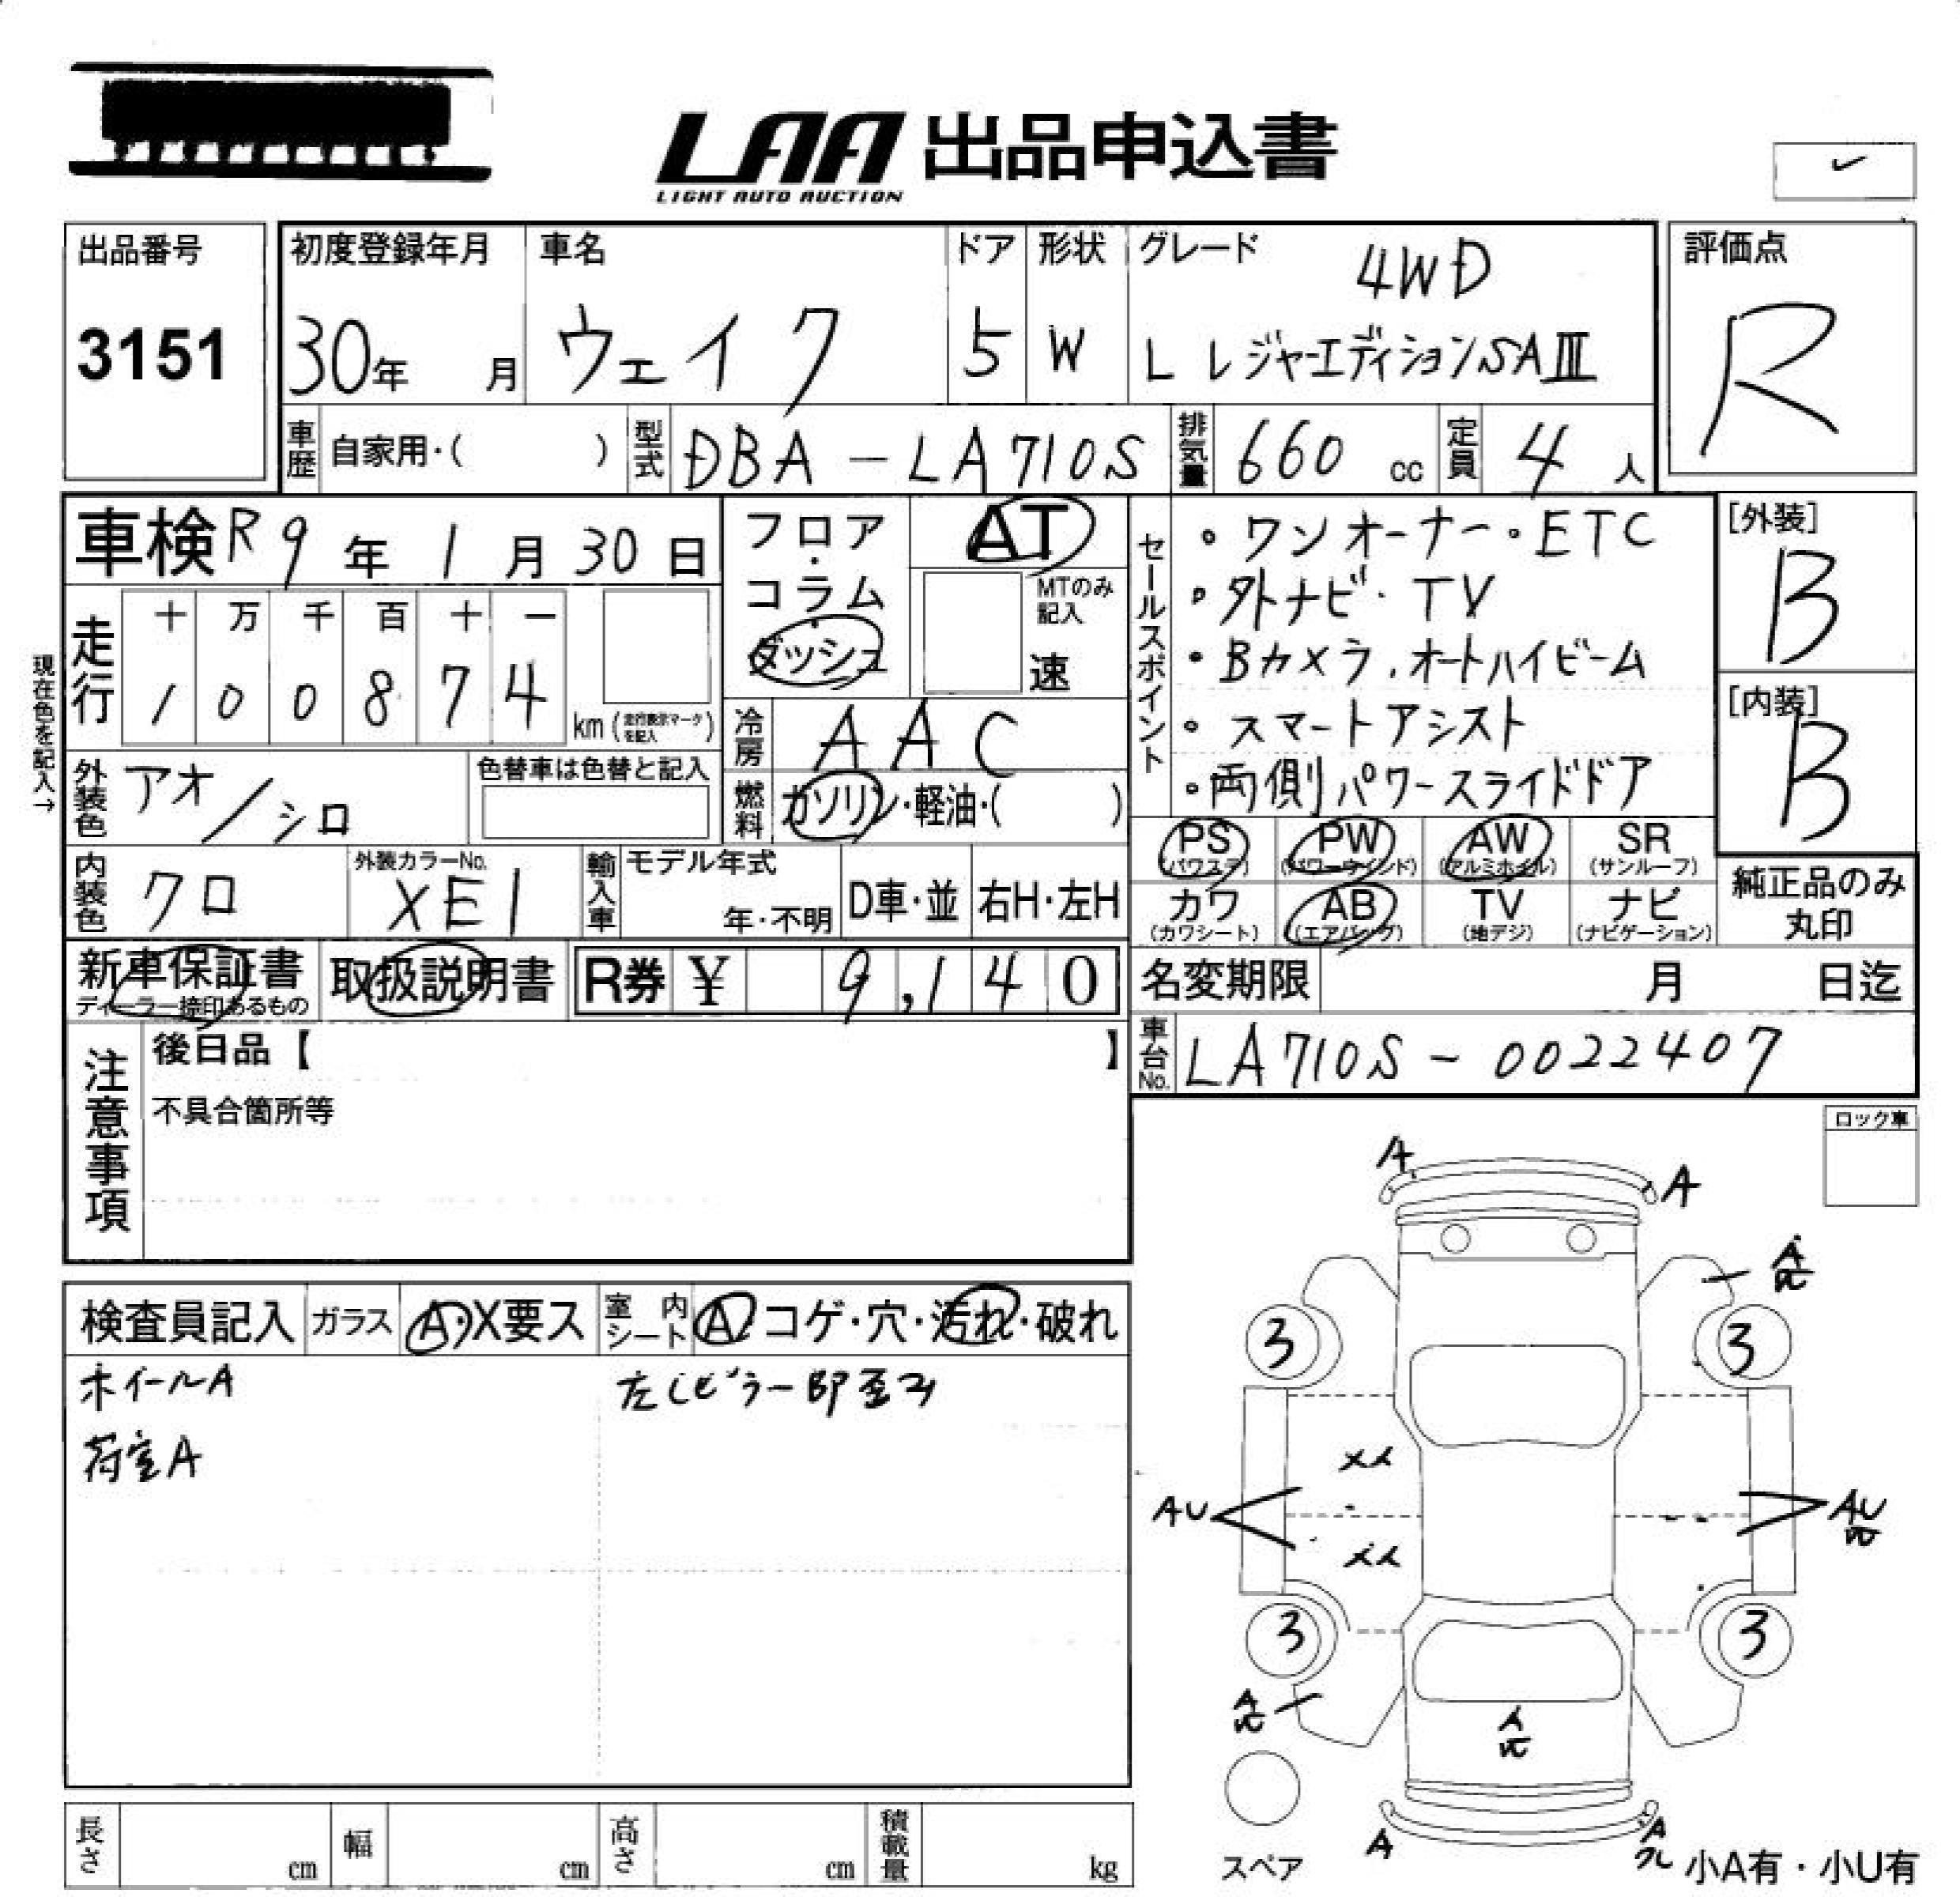 LAA 出品申込書
LIGHT AUTO AUCTION
出品番号
3151
初度登録年月
30年 月
車名
ウェイク
ドア
5
形状
W
グレード
4WD
L レジャーエディションSAⅢ
評価点
R
車歴 自家用・( )
型式 DBA-LA710S
排気量 660 cc
定員 4 人
車検 R9年 1月 30日
フロア・コラム・ダッシュ
AT
MTのみ記入
速
セールスポイント
・ワンオーナー・ETC
・外ナビ・TV
・Bカメラ.オートハイビーム
・スマートアシスト
・両側パワースライドドア
[外装]
B
[内装]
B
現在色を記入→
走行
十 万 千 百 十 一
1 0 0 8 7 4
km (走行表示マークを記入)
冷房 AAC
燃料 ガソリン・軽油・( )
外装色 アオ/シロ
色替車は色替と記入
内装色 クロ
外装カラーNo.
XE1
輸入車
モデル年式
年・不明
D車・並
右H・左H
PS (パワステ)
PW (パワーウインド)
AW (アルミホイル)
SR (サンルーフ)
カワ (カワシート)
AB (エアバッグ)
TV (地デジ)
ナビ (ナビゲーション)
純正品のみ丸印
新車保証書
ディーラー捺印あるもの
取扱説明書
R券 ¥ 9,140
名変期限 月 日迄
車台No. LA710S-0022407
注意事項
後日品【 】
不具合箇所等
ロック車
検査員記入
ガラス A・X要ス
室内シート A・コゲ・穴・汚れ・破れ
ホイールA
荷室A
A
A
A
3
3
AU
AU
3
3
A
A
A
スペア
小A有・小U有
長さ cm
幅 cm
高さ cm
積載量 kg